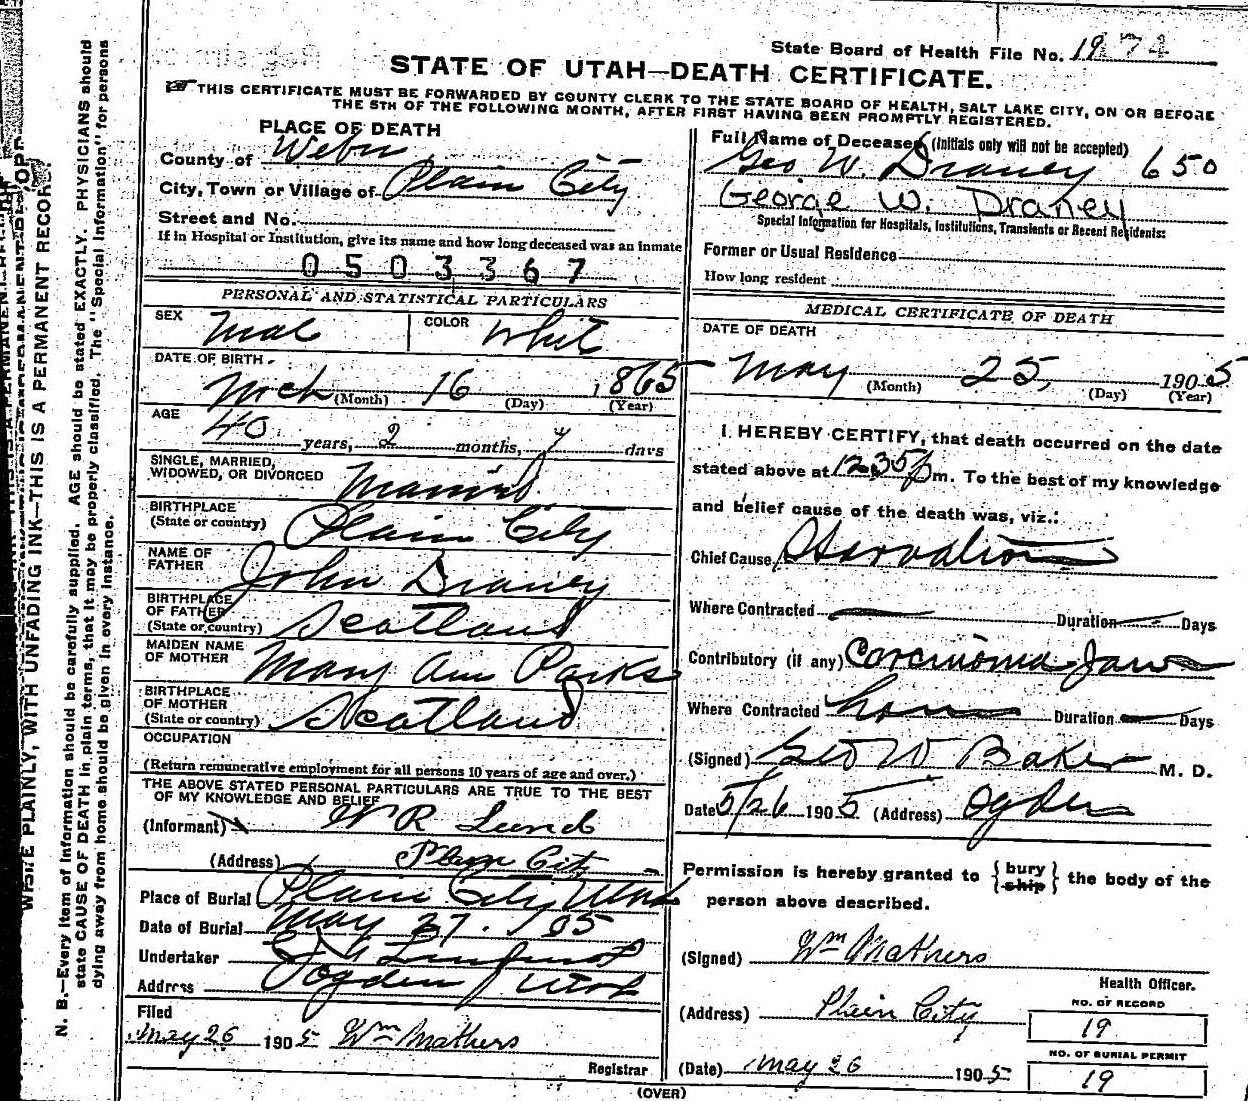 State Board of Health File No. 19 74
STATE OF UTAH—DEATH CERTIFICATE.
THIS CERTIFICATE MUST BE FORWARDED BY COUNTY CLERK TO THE STATE BOARD OF HEALTH, SALT LAKE CITY, ON OR BEFORE
THE 5TH OF THE FOLLOWING MONTH, AFTER FIRST HAVING BEEN PROMPTLY REGISTERED.
PLACE OF DEATH
County of Weber
City, Town or Village of Plain City
Street and No.
If in Hospital or Institution, give its name and how long deceased was an inmate
0503367
PERSONAL AND STATISTICAL PARTICULARS
SEX Male COLOR White
DATE OF BIRTH
Mch 16 1865
(Month) (Day) (Year)
AGE
40 years, 2 months, 7 days
SINGLE, MARRIED,
WIDOWED, OR DIVORCED Married
BIRTHPLACE
(State or country) Plain City
NAME OF
FATHER John Draney
BIRTHPLACE
OF FATHER
(State or country) Scotland
MAIDEN NAME
OF MOTHER Mary Ann Parks
BIRTHPLACE
OF MOTHER
(State or country) Scotland
OCCUPATION
(Return remunerative employment for all persons 10 years of age and over.)
THE ABOVE STATED PERSONAL PARTICULARS ARE TRUE TO THE BEST
OF MY KNOWLEDGE AND BELIEF
(Informant) W R Lund
(Address) Plain City
Place of Burial Plain City Utah
Date of Burial May 27. 1905
Undertaker
Address Ogden Utah
Filed
May 26 1905 Wm Mathers
Registrar
Full Name of Deceased (Initials only will not be accepted)
Geo W. Draney 650
George W. Draney
Special Information for Hospitals, Institutions, Transients or Recent Residents:
Former or Usual Residence
How long resident
MEDICAL CERTIFICATE OF DEATH
DATE OF DEATH
May 25, 1905
(Month) (Day) (Year)
I HEREBY CERTIFY, that death occurred on the date
stated above at 12 35 p m. To the best of my knowledge
and belief cause of the death was, viz.:
Chief Cause Starvation
Where Contracted — Duration — Days
Contributory (if any) Carcinoma Jaw
Where Contracted home Duration — Days
(Signed) Geo W Baker M. D.
Date 5/26 1905 (Address) Ogden
Permission is hereby granted to { bury ship } the body of the
person above described.
(Signed) Wm Mathers
Health Officer.
(Address) Plain City
NO. OF RECORD
19
NO. OF BURIAL PERMIT
(Date) May 26 1905
19
(OVER)
WRITE PLAINLY, WITH UNFADING INK—THIS IS A PERMANENT RECORD.
N. B.—Every item of information should be carefully supplied. AGE should be stated EXACTLY. PHYSICIANS should
state CAUSE OF DEATH in plain terms, that it may be properly classified. The "Special Information" for persons
dying away from home should be given in every instance.